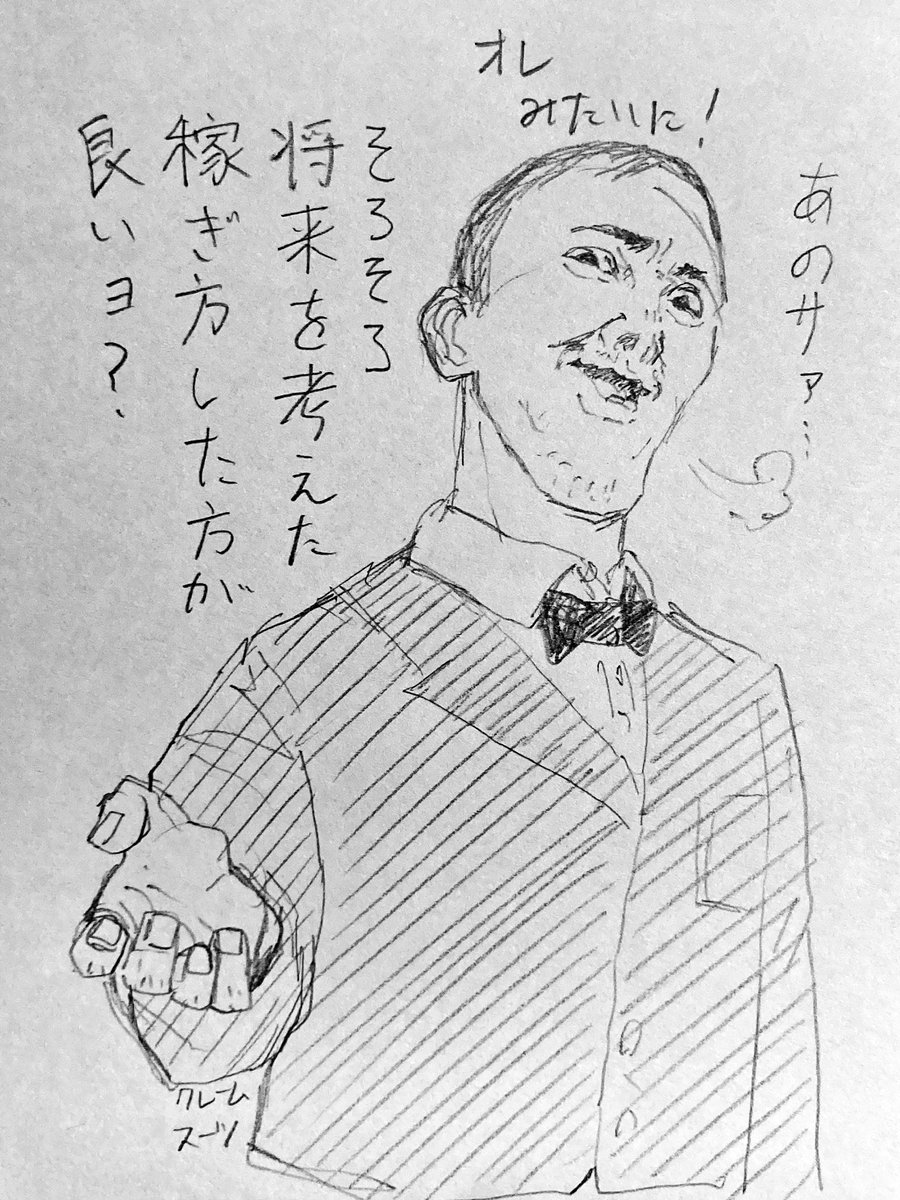 あのサァ…
そろそろ
将来を考えた
稼ぎ方した方が
良いヨ?
オレ
みたいに!
クレーム
スーツ